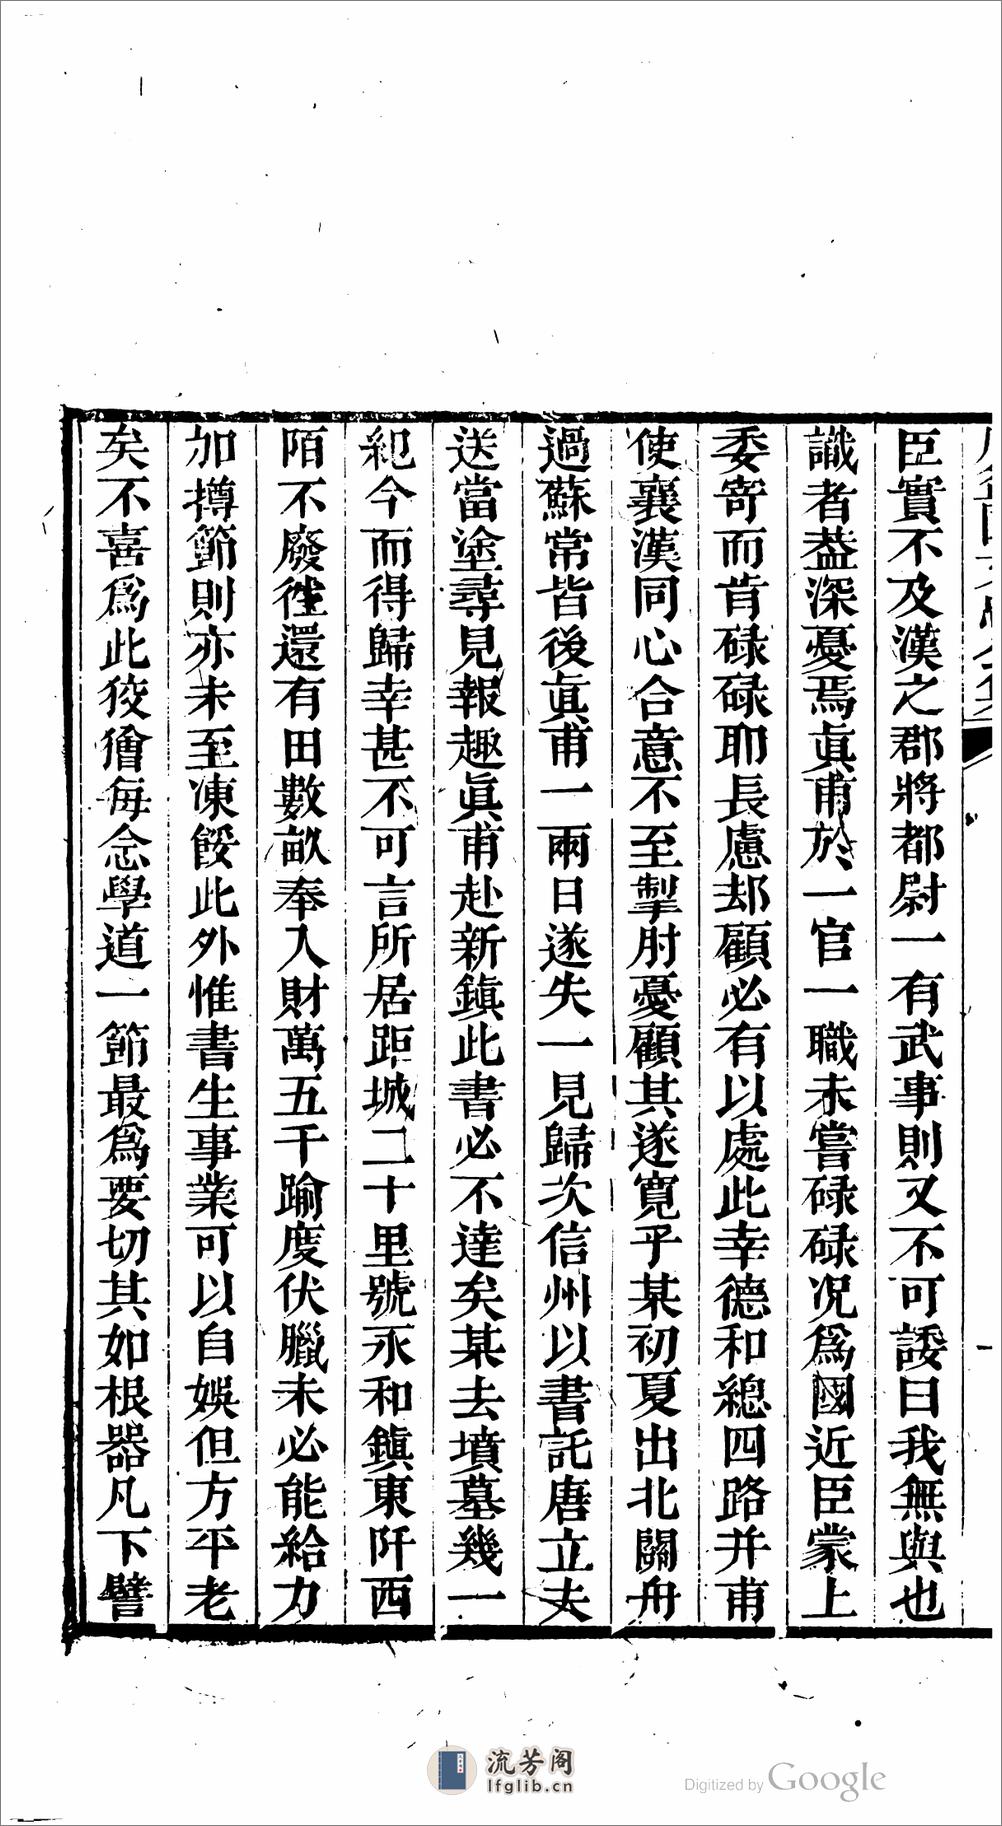 臣實不及漢之郡將都尉一有武事則又不可諉曰我無與也
識者葢深憂焉眞甫於一官一職未嘗碌碌况爲國近臣蒙上
委寄而肯碌碌耶長慮却顧必有以處此幸德和總四路并甫
使襄漢同心合意不至掣肘憂顧其遂寬乎某初夏出北關舟
過蘇常皆後眞甫一兩日遂失一見歸次信州以書託唐立夫
送當塗尋見報趣眞甫赴新鎭此書必不達矣某去墳墓幾一
紀今而得歸幸甚不可言所居距城二十里號永和鎭東阡西
陌不廢徃還有田數畝奉入財萬五千踰度伏臘未必能給力
加撙節則亦未至凍餒此外惟書生事業可以自娛但方平老
矣不喜爲此狡獪每念學道一節最爲要切其如根器凡下譬
流芳阁
lfglib.cn
Digitized by Google